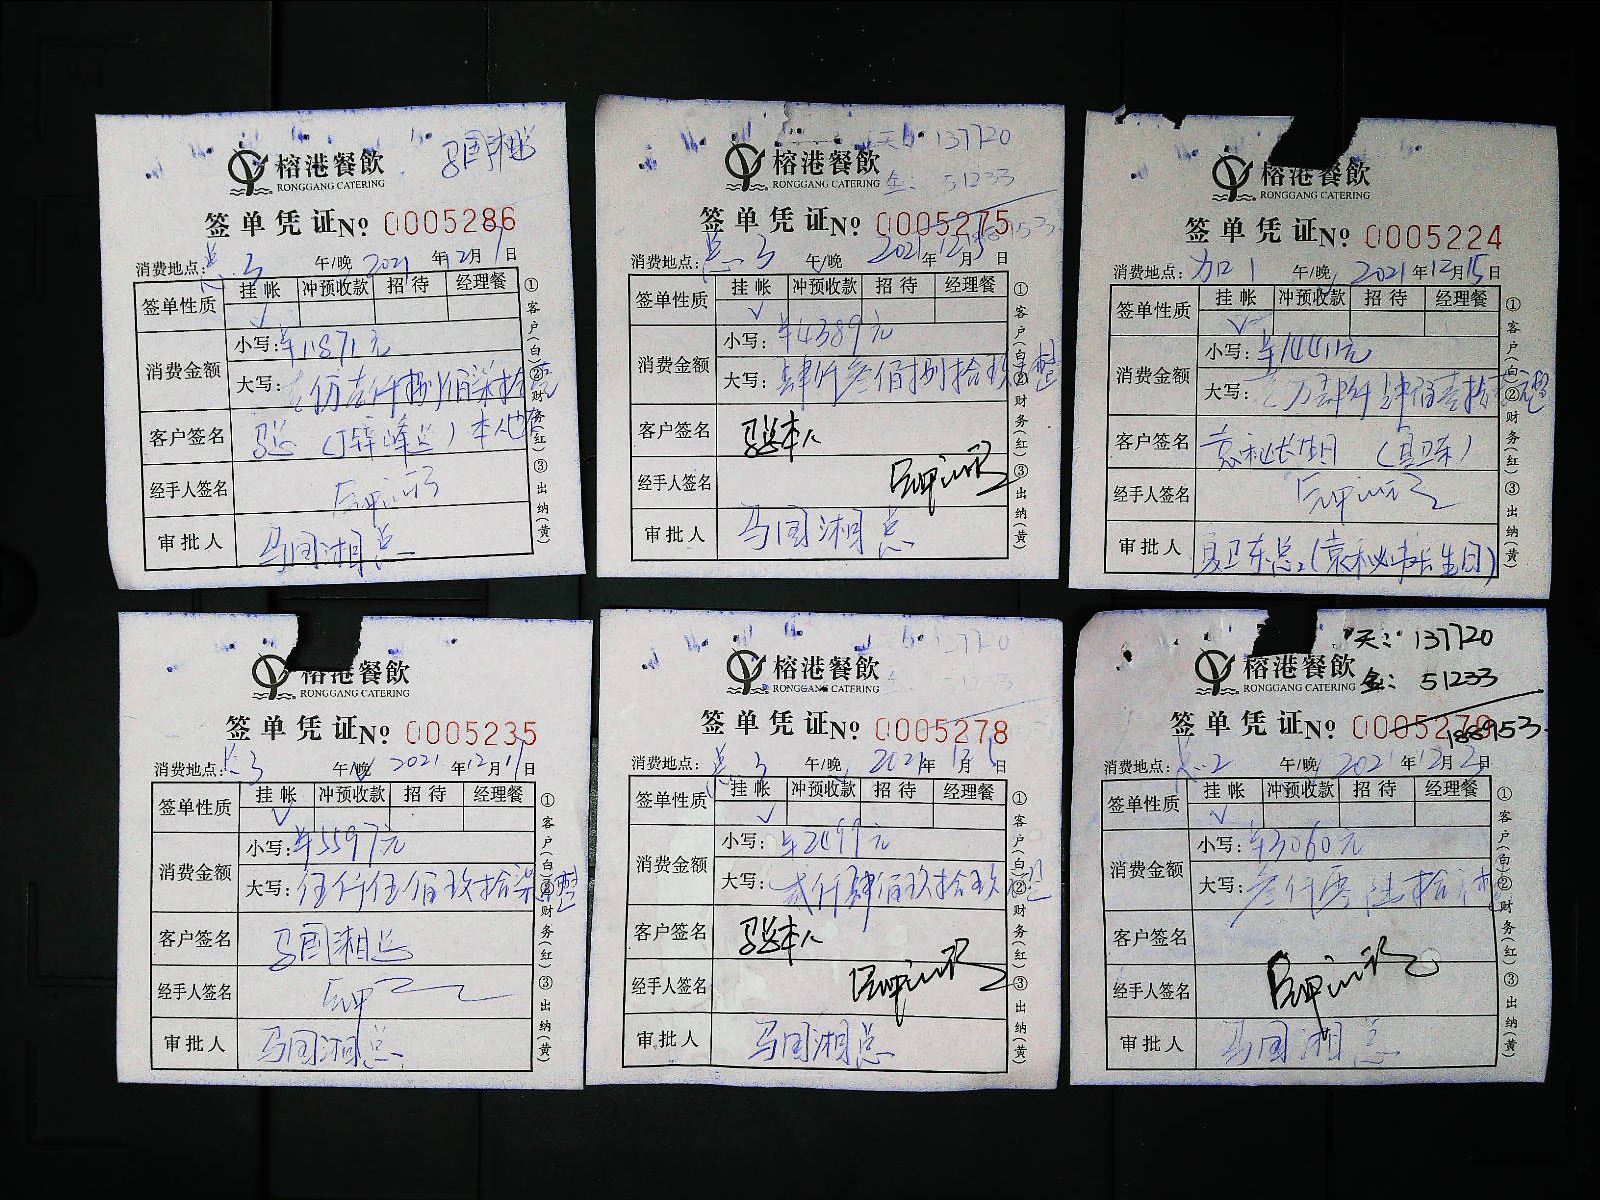 马国湘总
榕港餐飲
RONGGANG CATERING
签单凭证№ 0005286
消费地点:总3 午/晚 2021年12月 日
签单性质 挂帐 冲预收款 招待 经理餐
✓
消费金额 小写:¥11871元
大写:壹万壹仟捌佰柒拾壹元
客户签名 马总
经手人签名
审批人 马国湘总
①客户(白)②财务(红)③出纳(黄)
天: 137720
金: 51233
188953
榕港餐飲
RONGGANG CATERING
签单凭证№ 0005275
消费地点:总3 午/晚 2021年12月3日
签单性质 挂帐 冲预收款 招待 经理餐
✓
消费金额 小写:¥4389元
大写:肆仟叁佰捌拾玖元整
客户签名 马总本人
经手人签名
审批人 马国湘总
①客户(白)②财务(红)③出纳(黄)
榕港餐飲
RONGGANG CATERING
签单凭证№ 0005224
消费地点:加口1 午/晚 2021年12月15日
签单性质 挂帐 冲预收款 招待 经理餐
✓
消费金额 小写:¥14411元
大写:壹万肆仟肆佰壹拾壹元整
客户签名 袁秘长生日(夏卫东)
经手人签名
审批人 夏卫东总(袁秘书长生日)
①客户(白)②财务(红)③出纳(黄)
榕港餐飲
RONGGANG CATERING
签单凭证№ 0005235
消费地点:总3 午/晚 2021年12月17日
签单性质 挂帐 冲预收款 招待 经理餐
✓
消费金额 小写:¥5597元
大写:伍仟伍佰玖拾柒元整
客户签名 马国湘总
经手人签名
审批人 马国湘总
①客户(白)②财务(红)③出纳(黄)
137720
榕港餐飲
RONGGANG CATERING
签单凭证№ 0005278
消费地点:总3 午/晚 2021年12月 日
签单性质 挂帐 冲预收款 招待 经理餐
✓
消费金额 小写:¥2499元
大写:贰仟肆佰玖拾玖元整
客户签名 马总本人
经手人签名
审批人 马国湘总
①客户(白)②财务(红)③出纳(黄)
天: 137720
金: 51233
188953
榕港餐飲
RONGGANG CATERING
签单凭证№ 0005279
消费地点:总2 午/晚 2021年12月2日
签单性质 挂帐 冲预收款 招待 经理餐
✓
消费金额 小写:¥3060元
大写:叁仟零陆拾元
客户签名
经手人签名
审批人 马国湘总
①客户(白)②财务(红)③出纳(黄)